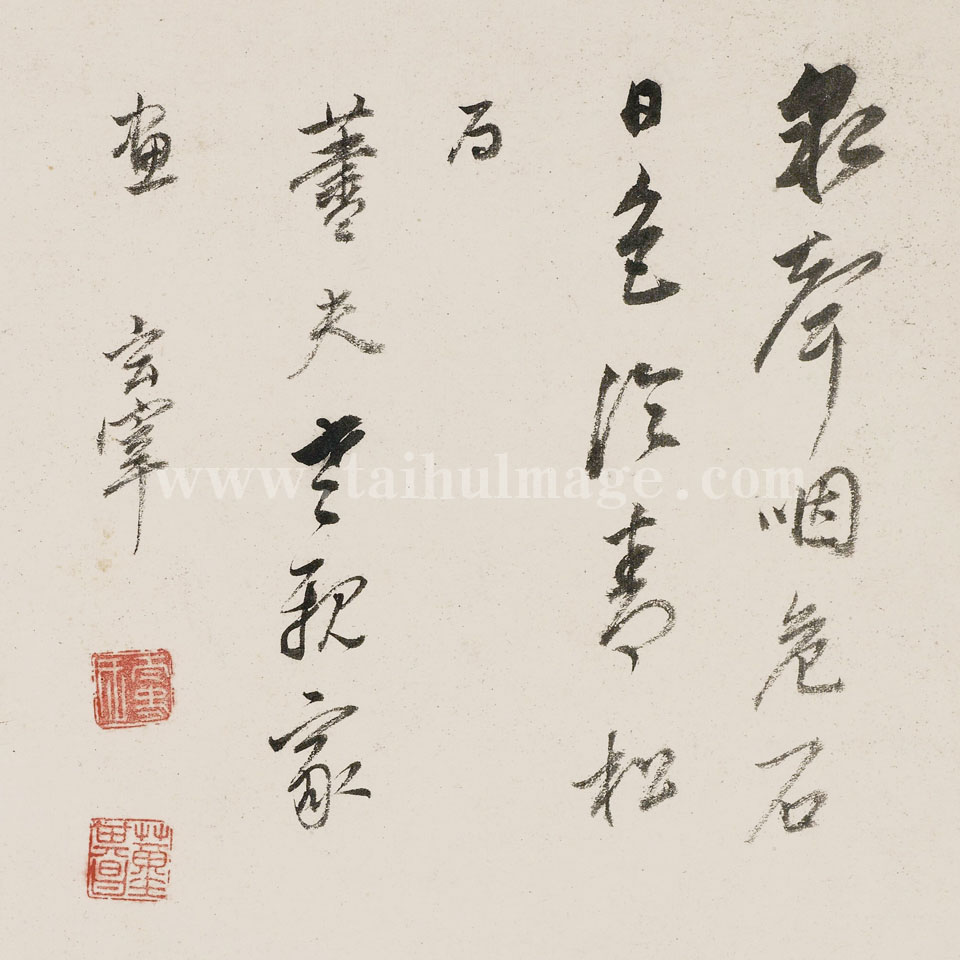 泉聲咽危石
日色冷青松
為
夫老親家
畫 玄宰
董其昌
www.taihuImage.com